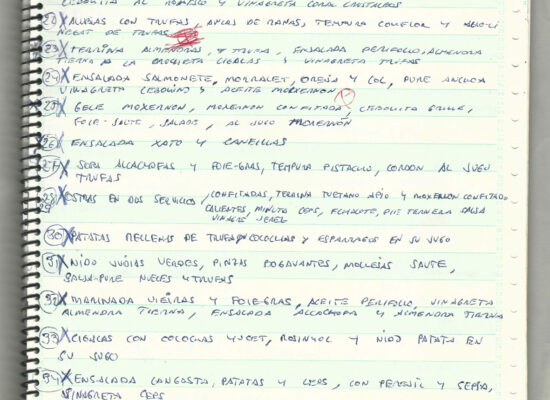 CEBOLLITA AL ROQUEFORT Y VINAGRETA CORAL CRUSTACEOS
22) ALUBIAS CON TRUFAS, ANCAS DE RANAS, TEMPURA COLIFLOR Y ALL-I-OLI
NEGAT DE TRUFAS
23) TERRINA ALMENDRAS, Y TRUFA, ENSALADA PERIFOLLO, ALMENDRA
TIERNA A LA BROQUETA CIGALAS Y VINAGRETA TRUFAS
24) ENSALADA SALMONETE, MORRALET, OREJA Y COL, PURE ANCHOA
VINAGRETA CEBOLLINO Y ACEITE MOIXERNON
25) GELE MOXERNON, MOXERNON CONFITADA, CEBOLLITA GRILLE,
FOIE-SAUTE, SALADE, AL JUGO MOXERNON
26) ENSALADA XATO Y CAÑAILLAS
27) SOPA ALCACHOFAS Y FOIE-GRAS, TEMPURA PISTACHO, CORDON AL JUGO
TRUFAS
28) OSTRAS EN DOS SERVICIOS, CONFITADAS, TERRINA TUETANO APIO Y MOXERNON CONFITADO
29 CALIENTES, MINUTO CEPS, ECHALOTE, PIE TERNERA SALSA
VINAGRE JEREZ
30) PATATAS RELLENAS DE TRUFA CON COLOCHAS Y ESPARRAGOS EN SU JUGO
31) NIDO JUDIAS VERDES, PINZAS BOGAVANTES, MOLLEJAS SAUTE,
SALSA-PURE NUECES Y TRUFAS
32) MARINADA VIEIRAS Y FOIE-GRAS, ACEITE PERIFOLLO, VINAGRETA
ALMENDRA TIERNA, ENSALADA ALCACHOFA Y ALMENDRA TIERNA
33) CIGALAS CON COLOCHAS Y CET, ROSINYOL Y NIDO PATATA EN
SU JUGO
34) ENSALADA LANGOSTA, PATATAS Y CEPS, CON PEREJIL Y SEPIA,
VINAGRETA CEPS